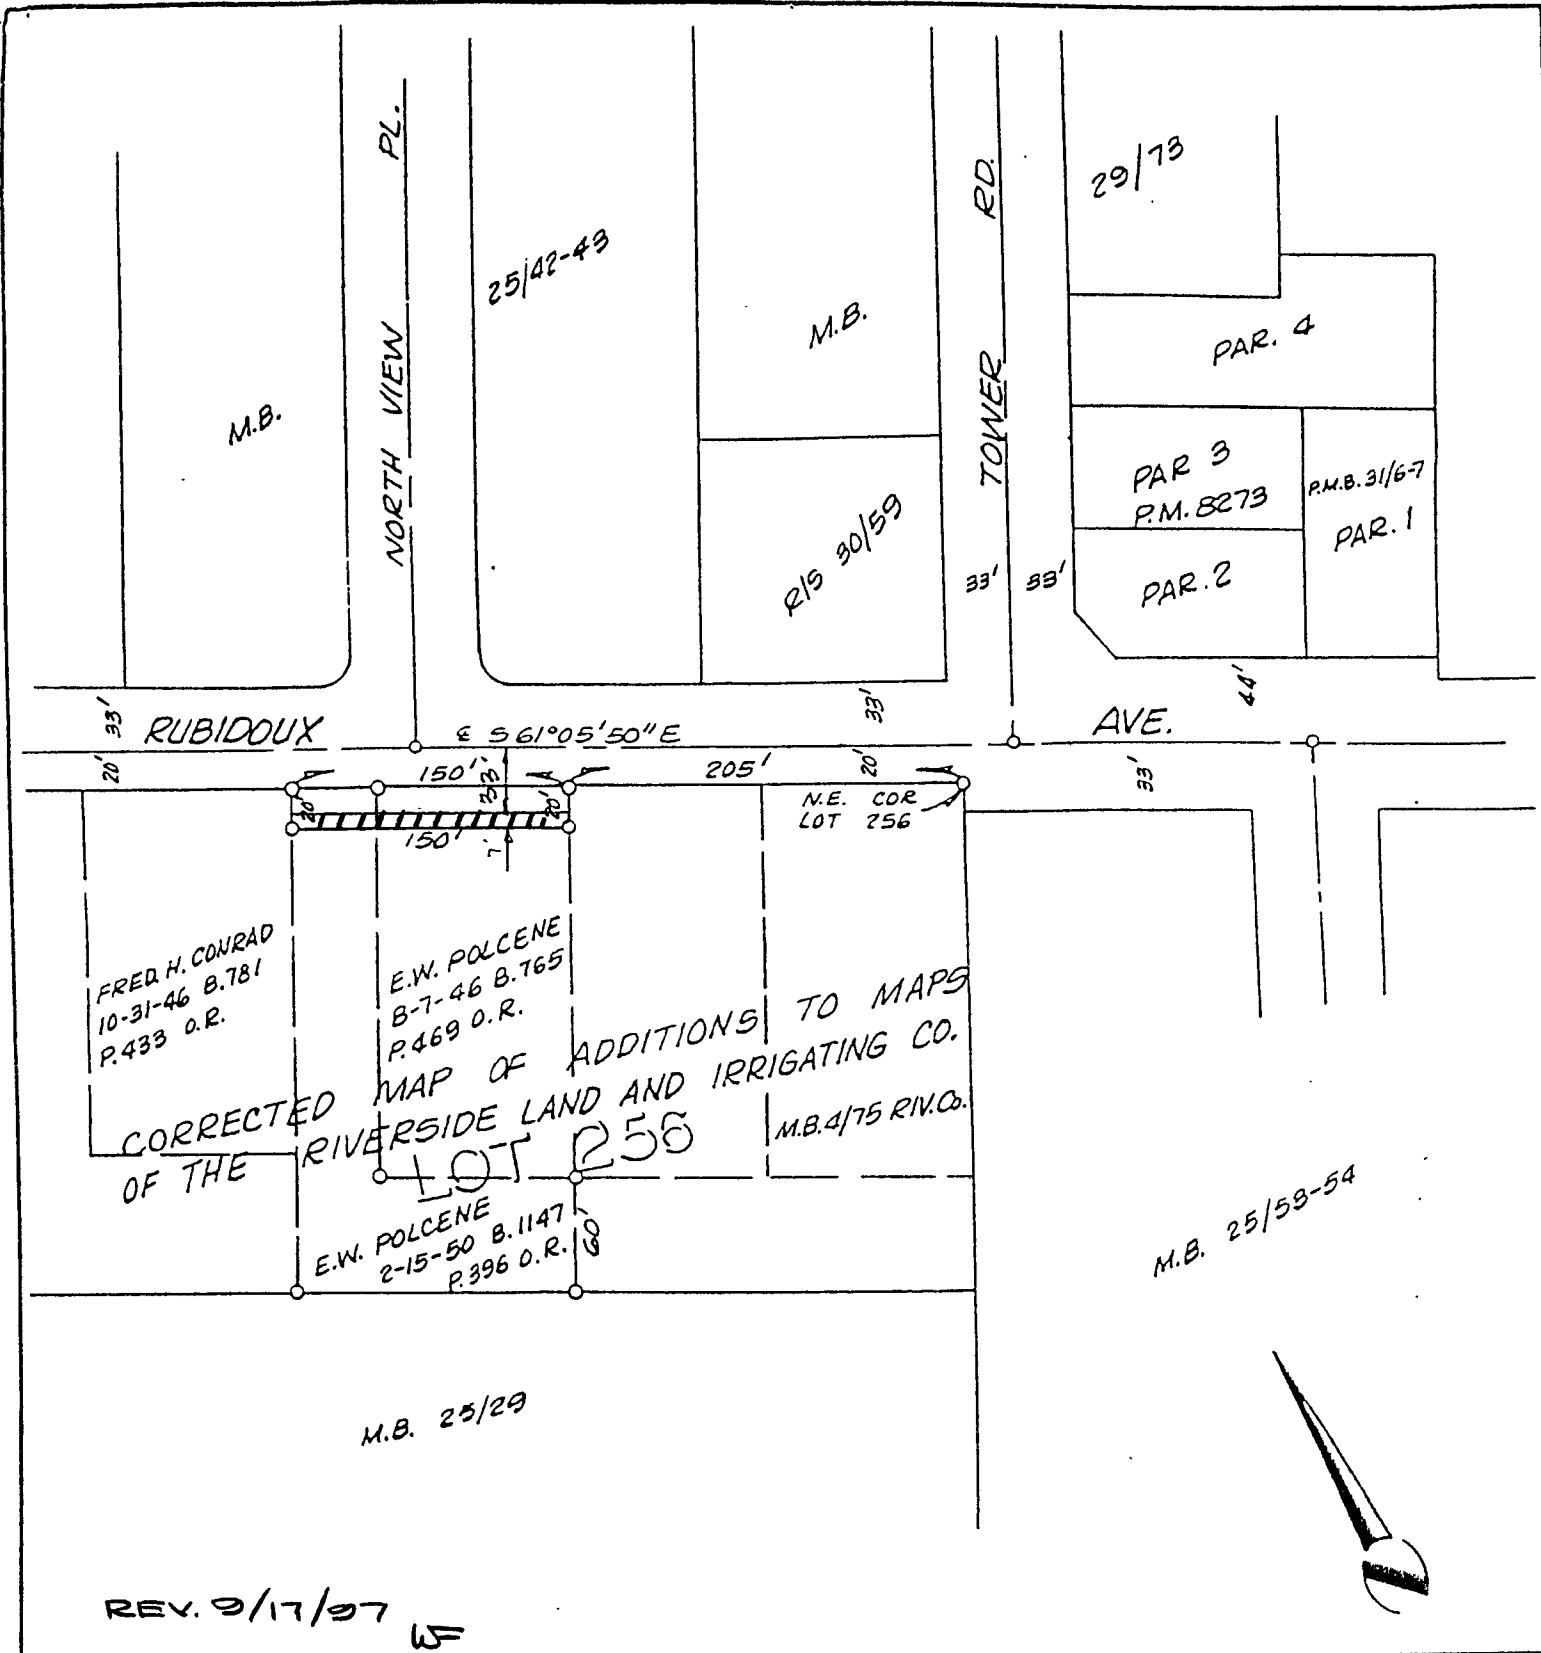 NORTH VIEW PL.
25/42-43
M.B.
M.B.
TOWER RD.
29/73
PAR. 4
PAR 3
P.M. 8273
P.M.B. 31/6-7
PAR. 1
PAR. 2
R/S 30/59
33'
33'
33'
RUBIDOUX
℄ S 61°05'50" E
33'
AVE.
44'
20'
150'
33'
205'
20'
33'
20'
20'
150'
7'
N.E. COR
LOT 256
FRED H. CONRAD
10-31-46 B.781
P.433 O.R.
E.W. POLCENE
8-7-46 B.765
P.469 O.R.
CORRECTED MAP OF ADDITIONS TO MAPS
OF THE RIVERSIDE LAND AND IRRIGATING CO.
LOT 256
M.B. 4/75 RIV. Co.
E.W. POLCENE
2-15-50 B.1147
P.396 O.R.
60'
M.B. 25/53-54
M.B. 25/29
REV. 9/17/97
WF